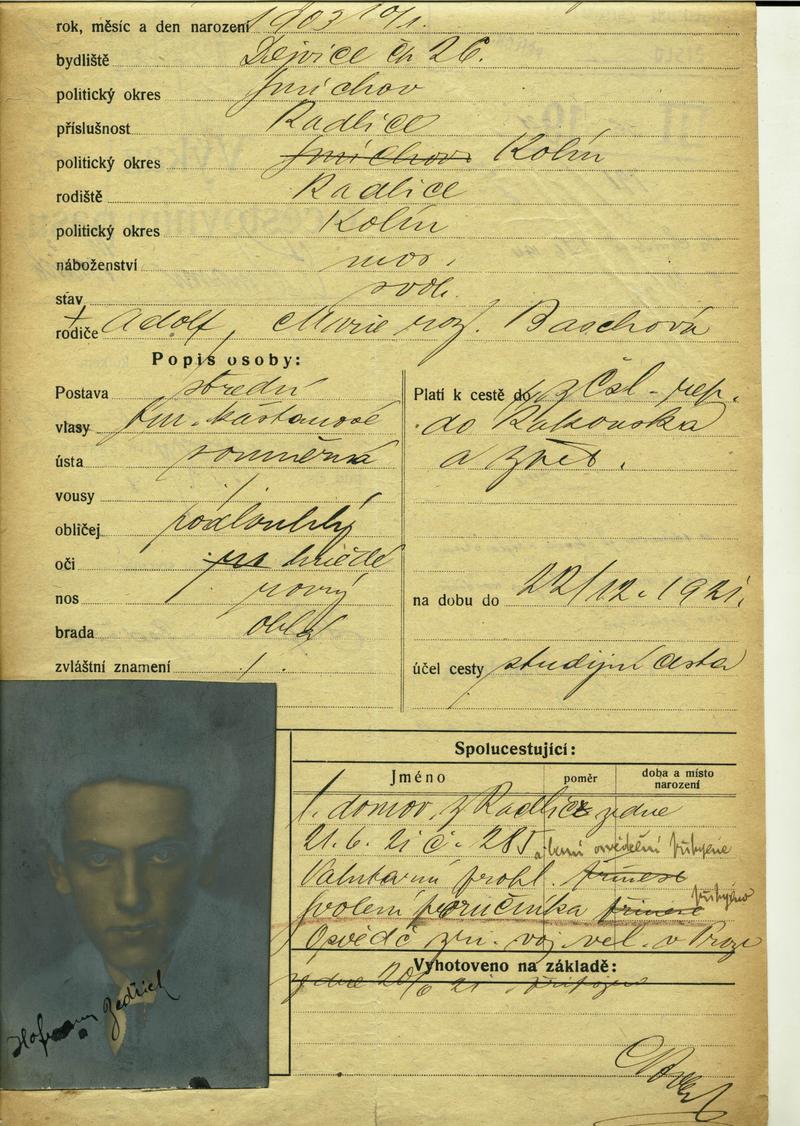 rok, měsíc a den narození 1903 10/1.
bydliště Dejvice čp 26.
politický okres Smíchov
příslušnost Radlice
politický okres Smíchov Kolín
rodiště Radlice
politický okres Kolín
náboženství mos.
stav svob.
rodiče Adolf, Marie roz. Baschová
Popis osoby:
Postava střední
vlasy tm. kaštanové
ústa souměrná
vousy /.
obličej podlouhlý
oči hnědé
nos rovný
brada oblá
zvláštní znamení /.
Platí k cestě do z Čsl. rep.
do Rakouska
a zpět.
na dobu do 22/12. 1921.
účel cesty studijní cesta
Spolucestující:
Jméno poměr doba a místo narození
l. domov. z Radlic ze dne
21. 6. 21 č. 285
Valutární prohl. přinese
Svolení poručníka přinese
Osvědč. voj. vel. v Praze
Vyhotoveno na základě:
ze dne 20/6 21
Hofmann Bedřich